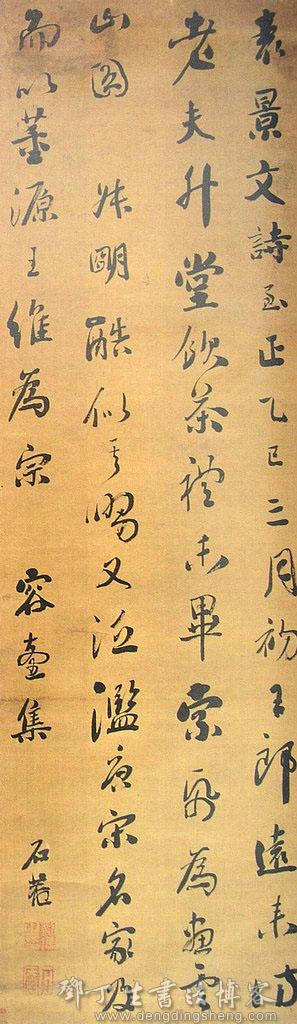 袁景文詩至正乙巳三月初王郎遠來訪
老夫升堂飲茶禮未畢索我為畫雲
山圖 叔明酷似其甥又泛濫唐宋名家乃
而以董源王維為宗 容臺集
石庵
鄧丁生書法博客
www.dengdingsheng.com